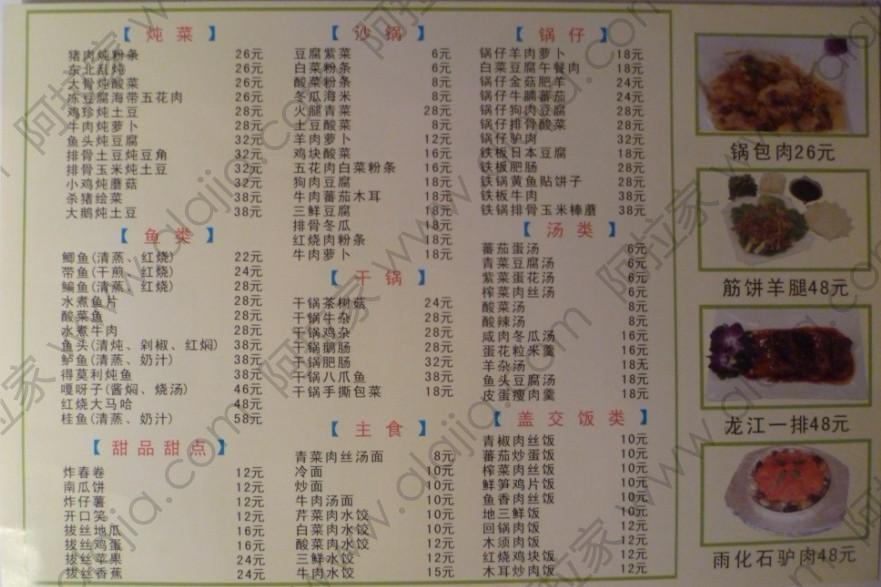 【炖菜】
猪肉炖粉条 26元
东北乱炖 26元
大骨炖酸菜 26元
冻豆腐海带五花肉 26元
鸡珍炖土豆 28元
牛肉炖萝卜 28元
鱼头炖豆腐 32元
排骨土豆炖豆角 32元
排骨玉米炖土豆 32元
小鸡炖蘑菇 32元
杀猪绘菜 38元
大鹅炖土豆 38元
【鱼类】
鲫鱼(清蒸、红烧) 22元
带鱼(干煎、红烧) 24元
鳊鱼(清蒸、红烧) 28元
水煮鱼片 28元
酸菜鱼 28元
水煮牛肉 28元
鱼头(清炖、剁椒、红焖) 38元
鲈鱼(清蒸、奶汁) 38元
得莫利炖鱼 38元
嘎呀子(酱焖、烧汤) 46元
红烧大马哈 48元
桂鱼(清蒸、奶汁) 58元
【甜品甜点】
炸春卷 12元
南瓜饼 12元
炸仔薯 12元
开口笑 12元
拔丝地瓜 16元
拔丝鸡蛋 16元
拔丝苹果 24元
拔丝香蕉 24元
【沙锅】
豆腐紫菜 6元
白菜粉条 6元
酸菜粉条 8元
冬瓜海米 8元
火腿青菜 28元
土豆酸菜 8元
羊肉萝卜 12元
鸡块酸菜 16元
五花肉白菜粉条 16元
狗肉豆腐 18元
牛肉蕃茄木耳 18元
三鲜豆腐 18元
排骨冬瓜 18元
红烧肉粉条 18元
牛肉萝卜 18元
【干锅】
干锅茶树菇 24元
干锅牛杂 28元
干锅鸡杂 28元
干锅鹅肠 28元
干锅肥肠 32元
干锅八爪鱼 38元
干锅手撕包菜 18元
【主食】
青菜肉丝汤面 8元
冷面 10元
炒面 10元
牛肉汤面 10元
芹菜肉水饺 10元
白菜肉水饺 10元
酸菜肉水饺 12元
三鲜水饺 12元
牛肉水饺 15元
【锅仔】
锅仔羊肉萝卜 18元
白菜豆腐午餐肉 18元
锅仔金菇肥羊 24元
锅仔牛腩蕃茄 24元
锅仔狗肉豆腐 28元
锅仔排骨酸菜 28元
锅仔驴肉 32元
铁板日本豆腐 18元
铁板肥肠 28元
铁锅黄鱼贴饼子 28元
铁板牛肉 38元
铁锅排骨玉米棒蘑 38元
【汤类】
蕃茄蛋汤 6元
青菜豆腐汤 6元
紫菜蛋花汤 6元
榨菜肉丝汤 6元
酸菜汤 8元
酸辣汤 8元
咸肉冬瓜汤 16元
蛋花粒米羹 16元
羊杂汤 18无
鱼头豆腐汤 18元
皮蛋瘦肉羹 18元
【盖交饭类】
青椒肉丝饭 10元
蕃茄炒蛋饭 10元
榨菜肉丝饭 10元
鲜笋鸡片饭 10元
鱼香肉丝饭 10元
地三鲜饭 10元
回锅肉饭 12元
木须肉饭 12元
红烧鸡块饭 12元
木耳炒肉饭 12元
锅包肉26元
筋饼羊腿48元
龙江一排48元
雨化石驴肉48元
阿拉家 www.alajia.com